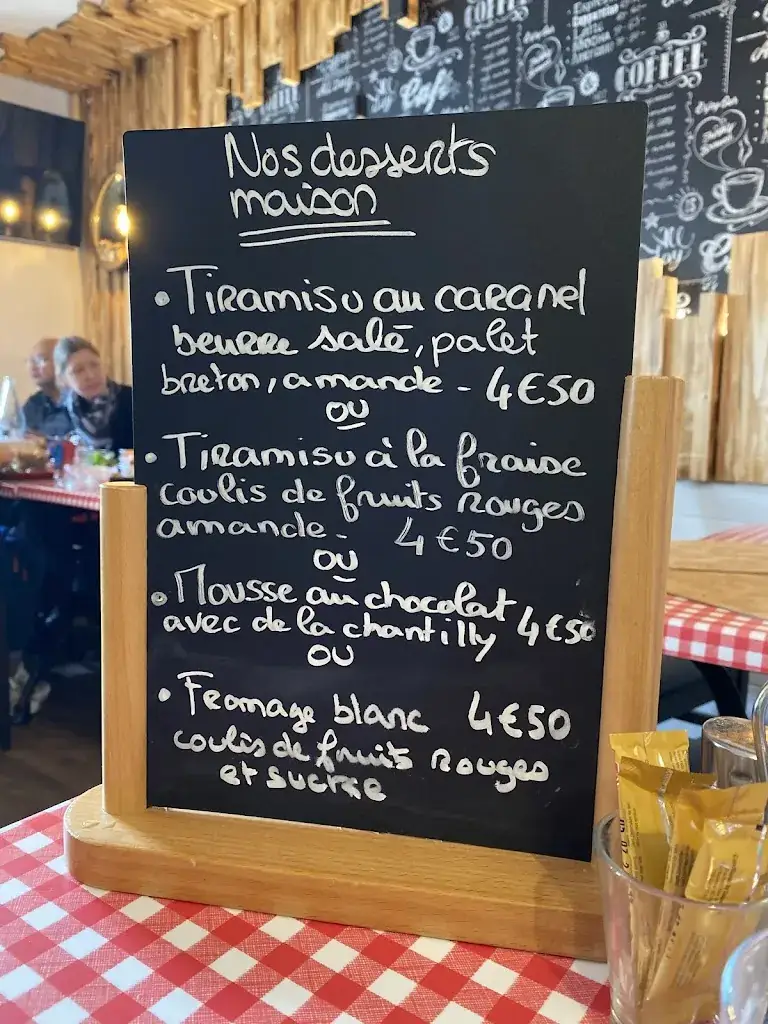 COFFEE
COFFEE
Café
Nos desserts
maison
• Tiramisu au caramel
beurre salé, palet
breton, amande - 4€50
ou
• Tiramisu à la fraise
coulis de fruits rouges
amande - 4€50
ou
• Mousse au chocolat
avec de la chantilly 4€50
ou
• Fromage blanc 4€50
coulis de fruits rouges
et sucre